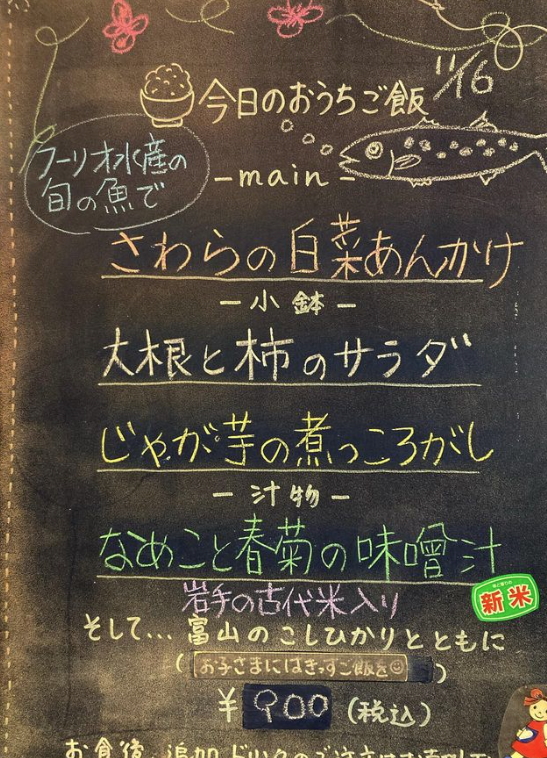 今日のおうちご飯 11/16
フーリオ水産の
旬の魚で
-main-
さわらの白菜あんかけ
-小鉢-
大根と柿のサラダ
じゃが芋の煮っころがし
-汁物-
なめこと春菊の味噌汁
新米
岩手の古代米入り
そして... 富山のこしひかりとともに
(お子さまにはきっずご飯を☺)
¥900(税込)
お食後、追加ドリンクのご注文は